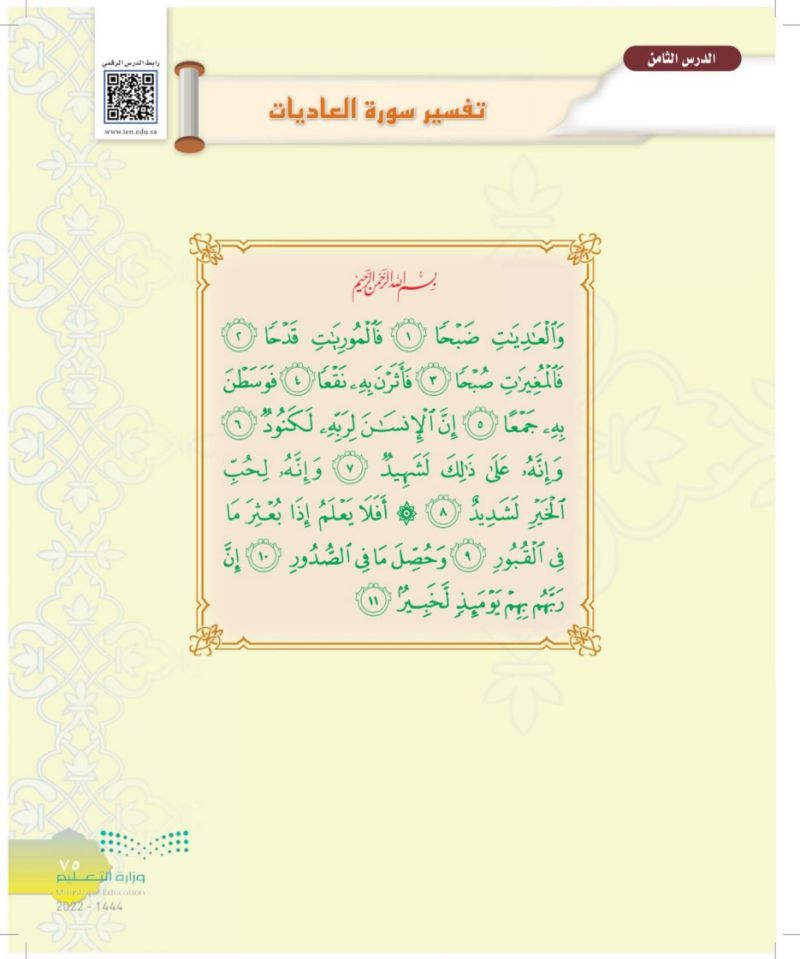 الدرس الثامن
رابط الدرس الرقمي
www.ien.edu.sa
تفسير سورة العاديات
بِسْمِ اللَّهِ الرَّحْمَٰنِ الرَّحِيمِ
وَٱلْعَٰدِيَٰتِ ضَبْحًا ١ فَٱلْمُورِيَٰتِ قَدْحًا ٢
فَٱلْمُغِيرَٰتِ صُبْحًا ٣ فَأَثَرْنَ بِهِۦ نَقْعًا ٤ فَوَسَطْنَ
بِهِۦ جَمْعًا ٥ إِنَّ ٱلْإِنسَٰنَ لِرَبِّهِۦ لَكَنُودٌ ٦
وَإِنَّهُۥ عَلَىٰ ذَٰلِكَ لَشَهِيدٌ ٧ وَإِنَّهُۥ لِحُبِّ
ٱلْخَيْرِ لَشَدِيدٌ ٨ ۞ أَفَلَا يَعْلَمُ إِذَا بُعْثِرَ مَا
فِى ٱلْقُبُورِ ٩ وَحُصِّلَ مَا فِى ٱلصُّدُورِ ١٠ إِنَّ
رَبَّهُم بِهِمْ يَوْمَئِذٍ لَّخَبِيرٌۢ ١١
٧٥
وزارة التعليم
Ministry of Education
2022 - 1444